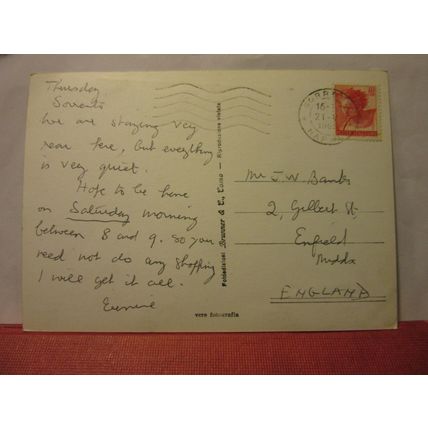 Thursday
Sorrento
We are staying very
near here, but everything
is very quiet.
Hope to be home
on Saturday morning
between 8 and 9. so you
need not do any shopping
I will get it all.
Eunice
Brunner & C., Como - Riproduzione vietata
vera fotografia
Mr J. W. Banks
2, Gilbert St,
Enfield
Middx
ENGLAND